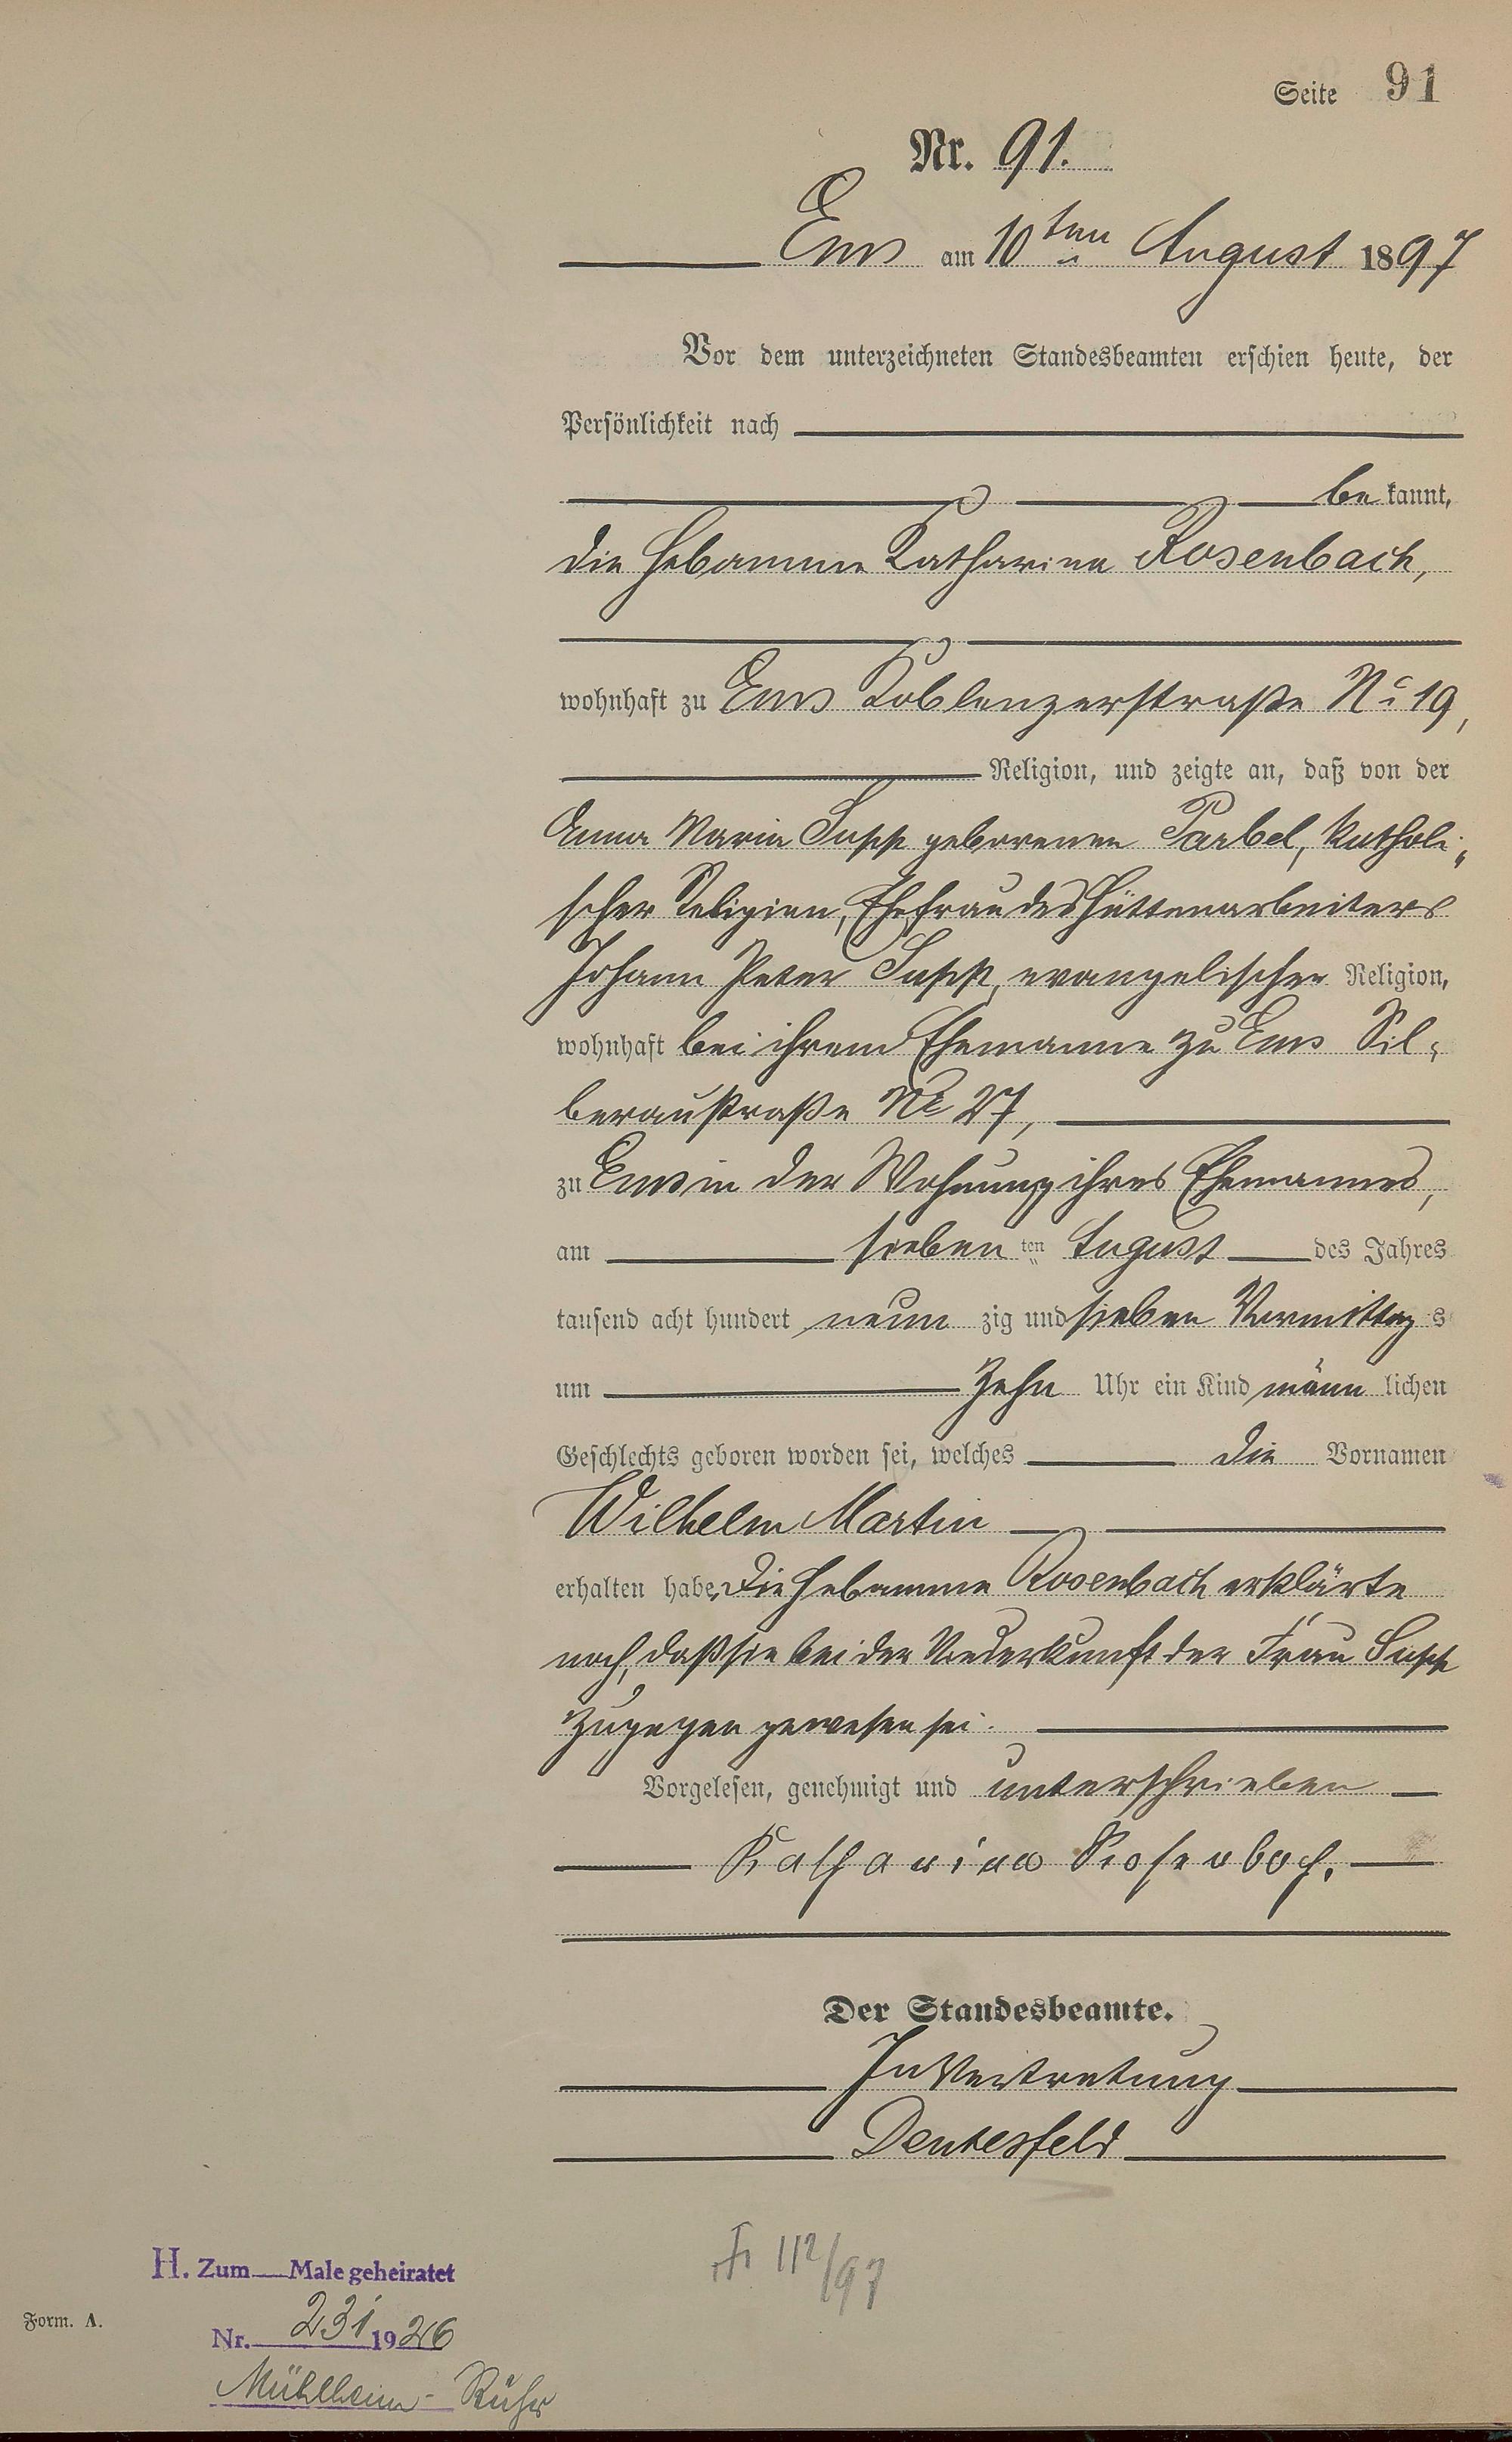 Seite 91
Nr. 91.
Ems am 10ten August 1897
Vor dem unterzeichneten Standesbeamten erschien heute, der
Persönlichkeit nach
be kannt,
die Hebamme Katharina Rosenbach,
wohnhaft zu Ems Koblenzerstraße No 19,
Religion, und zeigte an, daß von der
Anna Maria Supp geborenen Parbel, katholi-
scher Religion, Ehefrau des Hüttenarbeiters
Johann Peter Supp, evangelischer Religion,
wohnhaft bei ihrem Ehemanne zu Ems Sil-
beraustraße No 27,
zu Ems in der Wohnung ihres Ehemannes,
am sieben ten August des Jahres
tausend acht hundert neun zig und sieben Vormittag s
um zehn Uhr ein Kind männ lichen
Geschlechts geboren worden sei, welches die Vornamen
Wilhelm Martin
erhalten habe. Die Hebamme Rosenbach erklärte
noch, daß sie bei der Niederkunft der Frau Supp
zugegen gewesen sei.
Vorgelesen, genehmigt und unterschrieben
Katharina Rosenbach.
Der Standesbeamte.
In Vertretung
Deutesfeld
112/97
H. Zum Male geheiratet
Form. A.
Nr. 231 1926
Mühlheim-Ruhr